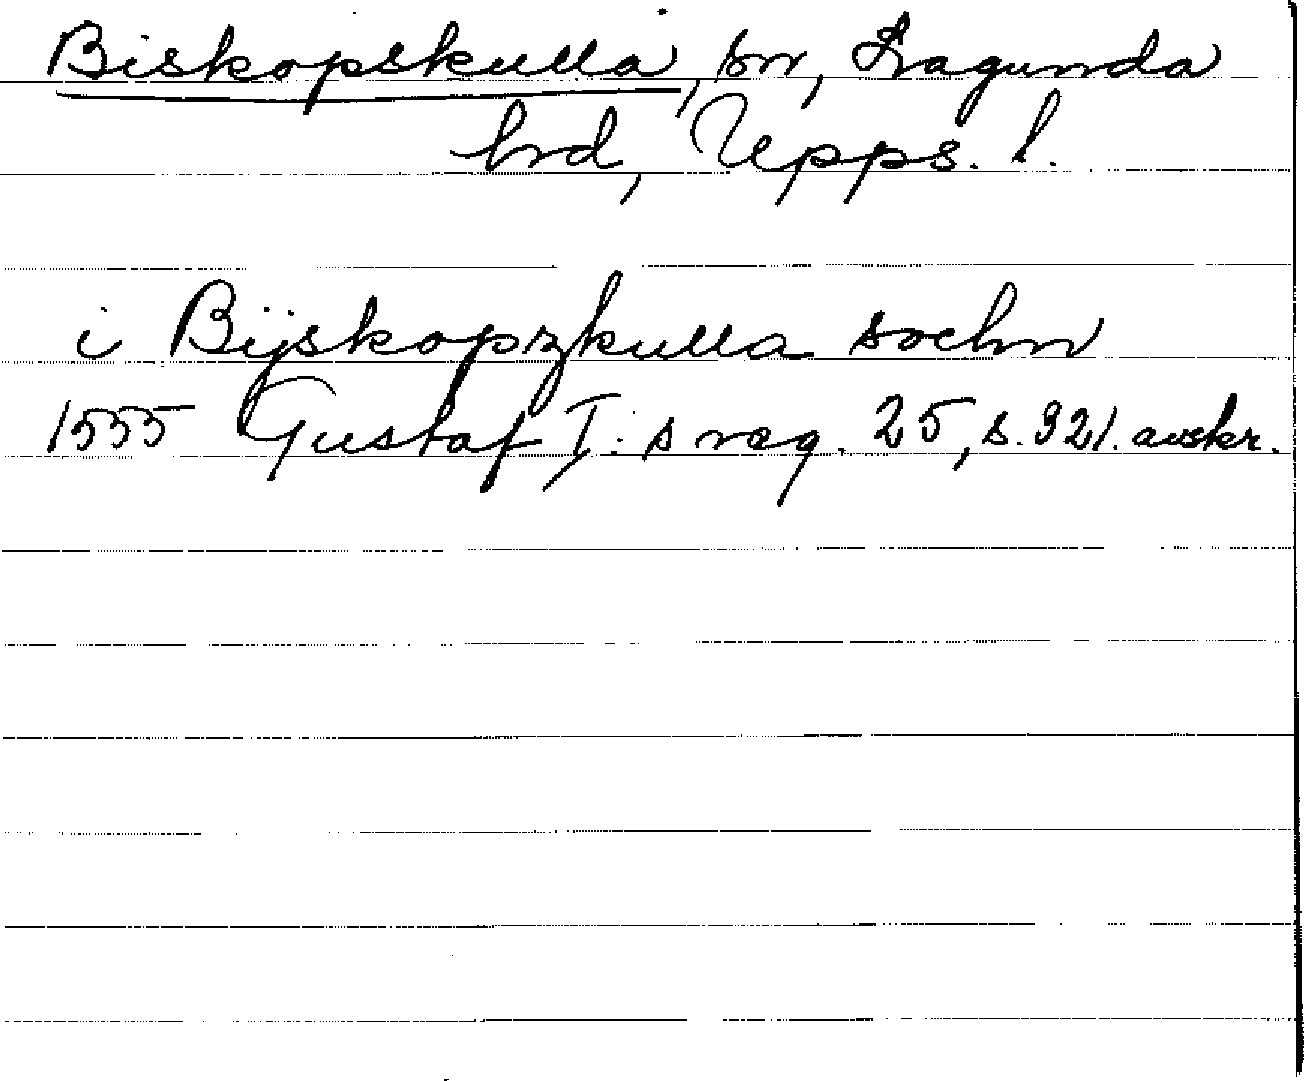 Biskopskulla, sn, Lagunda
hrd, Upps. l.
i Bijskopzkulla sochn
1555 Gustaf I:s reg. 25, s. 321. avskr.